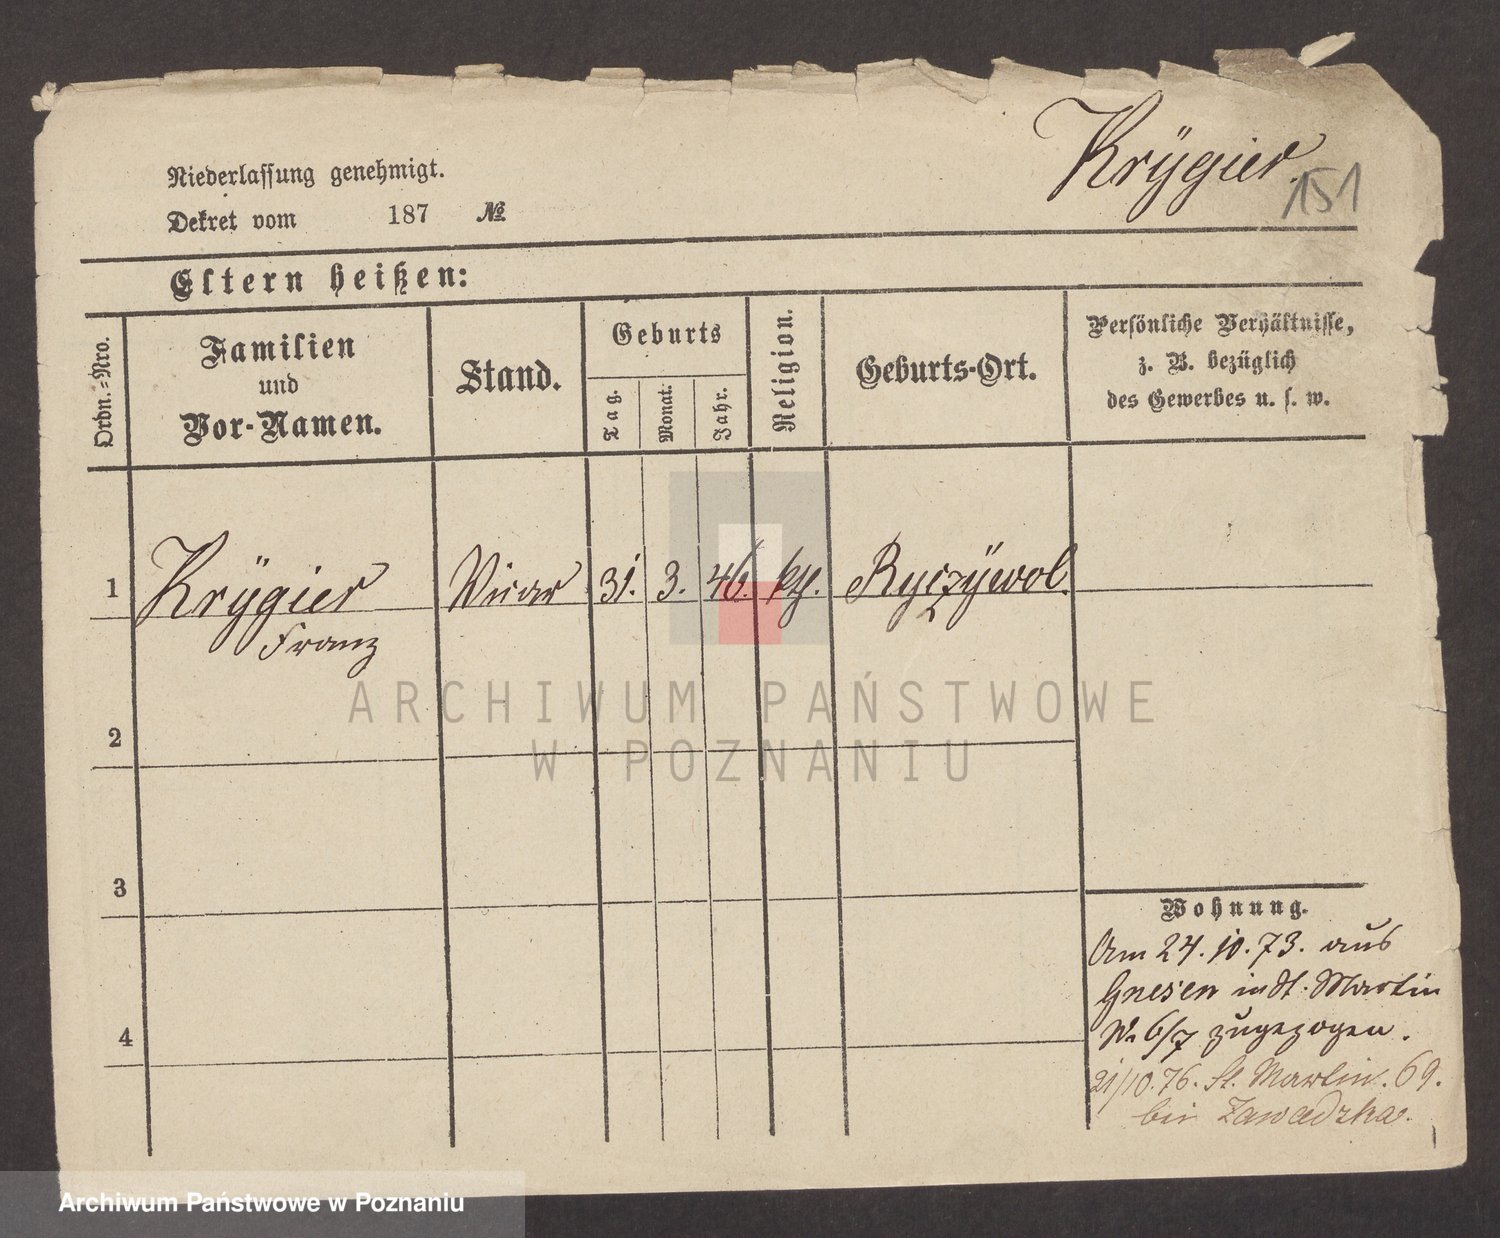 Krÿgier.
151
Niederlassung genehmigt.
Dekret vom 187 №
Eltern heißen:
Ordn.-Nro.
Familien
und
Vor-Namen.
Stand.
Geburts
Tag.
Monat.
Jahr.
Religion.
Geburts-Ort.
Persönliche Verhältnisse,
z. B. bezüglich
des Gewerbes u. s. w.
1 Krÿgier Vicar 31. 3. 46. kth. Ryczÿwol.
Franz
ARCHIWUM PAŃSTWOWE
W POZNANIU
2
3
4
Wohnung.
Am 24.10.73. aus
Gnesen in St. Martin
No 6/7 zugezogen.
21/10.76. St. Martin. 69.
bei Zawadzka.
Archiwum Państwowe w Poznaniu